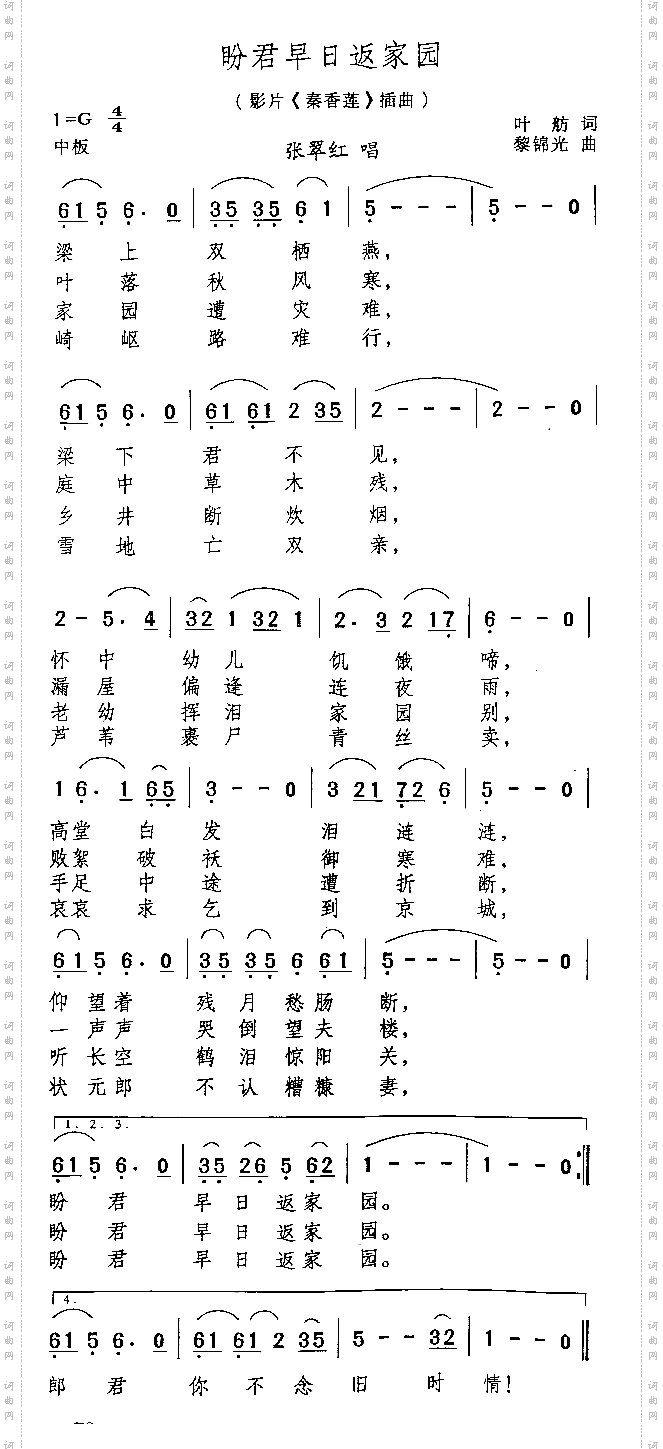 盼君早日返家园
（影片《秦香莲》插曲）
1=G 4/4
叶舫 词
中板
张翠红 唱
黎锦光 曲
6 1 5 6 · 0 | 3 5 3 5 6 1 | 5 - - - | 5 - - 0 |
梁上双栖燕，
叶落秋风寒，
家园遭灾难，
崎岖路难行，
6 1 5 6 · 0 | 6 1 6 1 2 3 5 | 2 - - - | 2 - - 0 |
梁下君不见，
庭中草木残，
乡井断炊烟，
雪地亡双亲，
2 - 5 . 4 | 3 2 1 3 2 1 | 2 . 3 2 1 7 | 6 - - 0 |
怀中幼儿饥饿啼，
漏屋偏逢连夜雨，
老幼挥泪家园别，
芦苇裹尸青丝卖，
1 6 . 1 6 5 | 3 - - 0 | 3 2 1 7 2 6 | 5 - - 0 |
高堂白发泪涟涟，
败絮破袄御寒难，
手足中途遭折断，
哀哀求乞到京城，
6 1 5 6 · 0 | 3 5 3 5 6 6 1 | 5 - - - | 5 - - 0 |
仰望着残月愁肠断，
一声声哭倒望夫楼，
听长空鹤泪惊阳关，
状元郎不认糟糠妻，
1. 2. 3.
6 1 5 6 · 0 | 3 5 2 6 5 6 2 | 1 - - - | 1 - - 0 :||
盼君早日返家园。
盼君早日返家园。
盼君早日返家园。
4.
6 1 5 6 · 0 | 6 1 6 1 2 3 5 | 5 - - 3 2 | 1 - - 0 ||
郎君你不念旧时情！